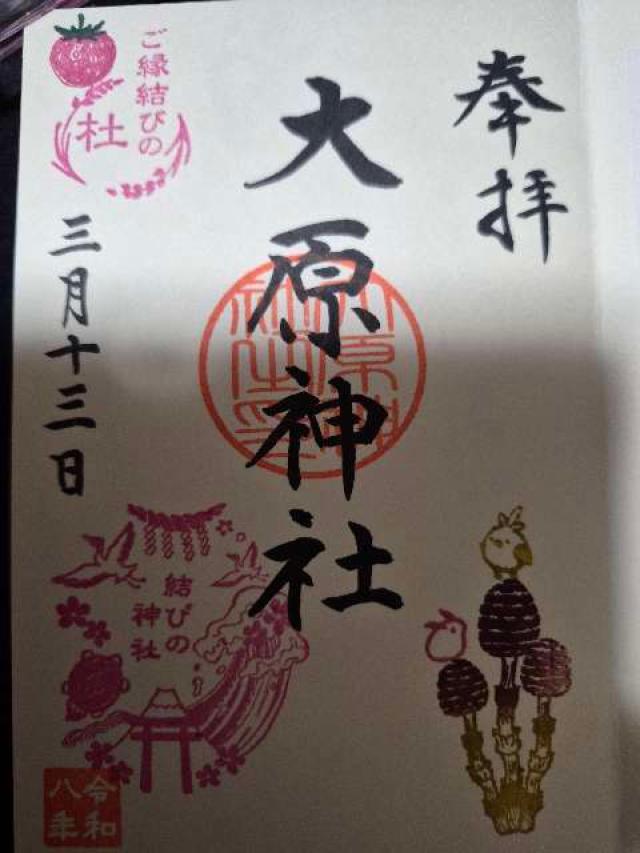 奉拝
大原神社
大原神社之印
ご縁結びの
杜
三月十三日
結びの
神社
令和
八年